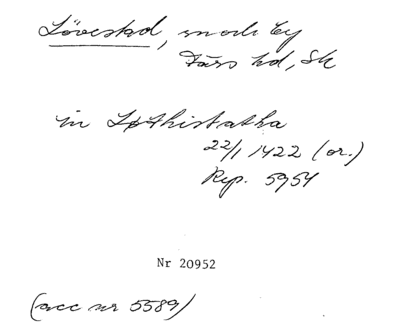 Lövestad, sn och by
Färs hd, Sk
in Løthistatha
22/1 1422 (or.)
Rep. 5954
Nr 20952
(acc nr 5589)